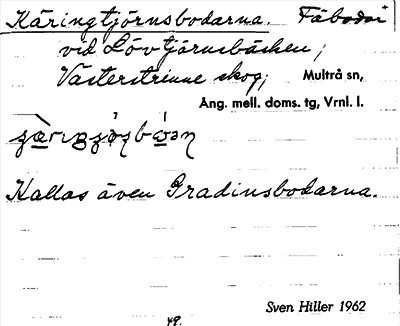 Käringtjörnsbodarna. Fäbodar
vid Lövtjärnsbäcken,
Västerstrinne skog, Multrå sn,
Ång. mell. doms. tg, Vrnl. l.
Kallas även Gradinsbodarna.
Sven Hiller 1962
49.